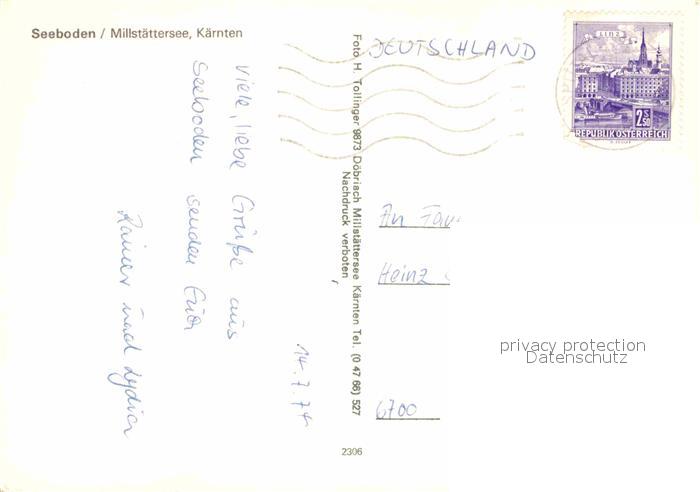 Seeboden / Millstättersee, Kärnten
DEUTSCHLAND
LINZ
2.50 S
REPUBLIK ÖSTERREICH
14.7.74
Viele, liebe Grüße aus
Seeboden senden Euch
Rainer und Lydia
Foto H. Tollinger 9873 Döbriach Millstättersee Kärnten Tel. (0 47 66) 527
Nachdruck verboten
An Fam
Heinz
6700
privacy protection
Datenschutz
2306